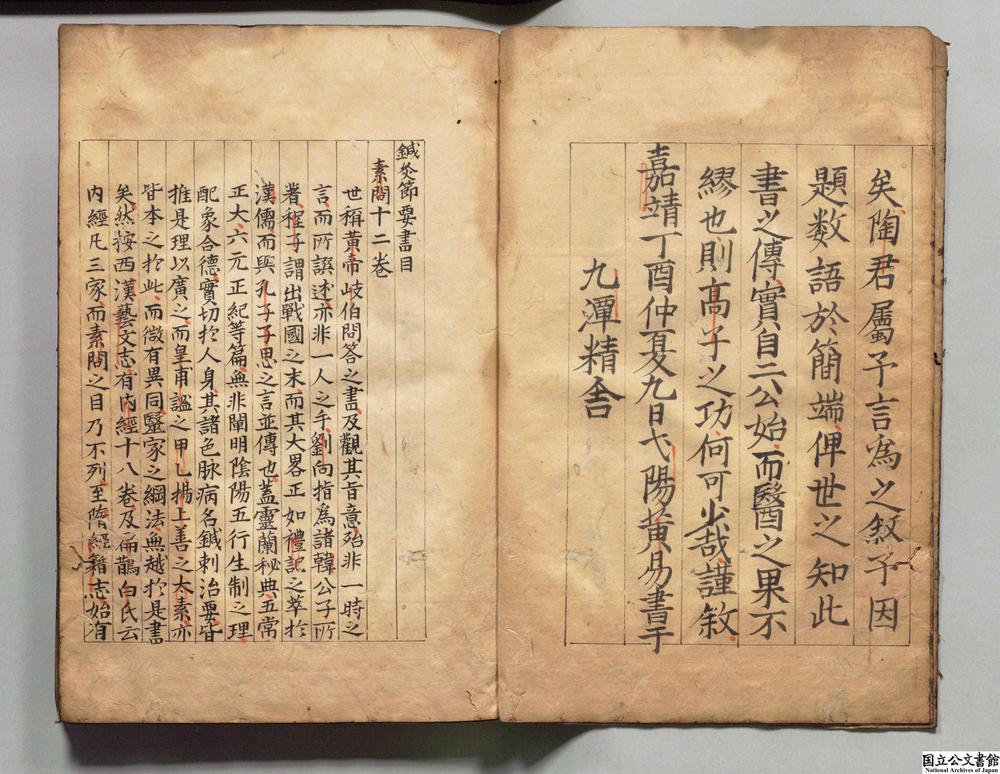 矣陶君屬予言為之叙予因
題数語於簡端俾世之知此
書之傳實自二公始而醫之果不
繆也則高子之功何可少哉謹叙
嘉靖丁酉仲夏九日弋陽黄易書于
九潭精舍
鍼灸節要書目
素問十二巻
世稱黄帝岐伯問答之書及觀其旨意殆非一時之
言而所譔述亦非一人之手劉向指為諸韓公子所
著程子謂出戰國之末而其大畧正如禮記之萃於
漢儒而與孔子子思之言並傳也蓋靈蘭秘典五常
正大六元正紀等篇無非闡明陰陽五行生制之理
配象合德實切於人身其諸色脉病名鍼刺治要皆
推是理以廣之而皇甫謐之甲乙揚上善之太素亦
皆本之於此而微有異同醫家之綱法無越於是書
矣然按西漢藝文志有内經十八卷及扁鵲白氏云
内經凡三家而素問之目乃不列至隋經籍志始有
国立公文書館
National Archives of Japan